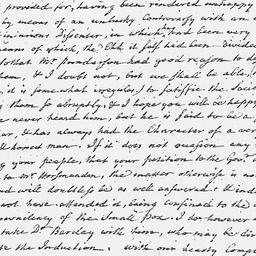 provided for, having been rendered unhappy
by means of an unlucky Controversy with an
Dissenter, in which, had been very
means of which, the Chh it self had been Divided
so that Mr. had good reason to
& I doubt not, but we shall be able,
it is some what irregular, to satisfie the Socie
them so abruptly, & I hope you will be happy
never heard him, but he is said to be a
& has always had the Character of a ver
man. If it does not occasion any
your people, that your petition to the Gov.
to Mr. Horsmanden, the matter otherwise is no
will doubtless be as well answered. I ind
not have Attended it, being confined to the
of the Small Pox. I do however
take Dr. Barclay with him, who may be dir
the Induction. with our hearty Comp